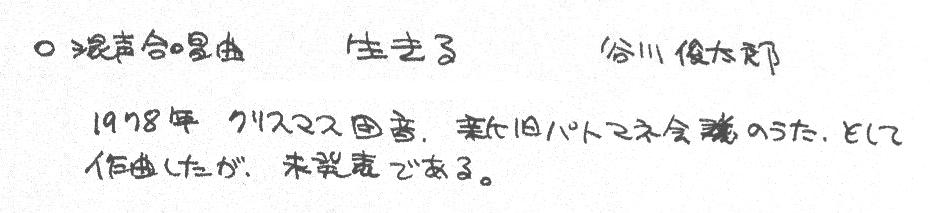 ○混声合唱曲 生きる 谷川俊太郎
1978年 クリスマス団音、新旧パトマネ会議のうた、として
作曲したが、未発表である。